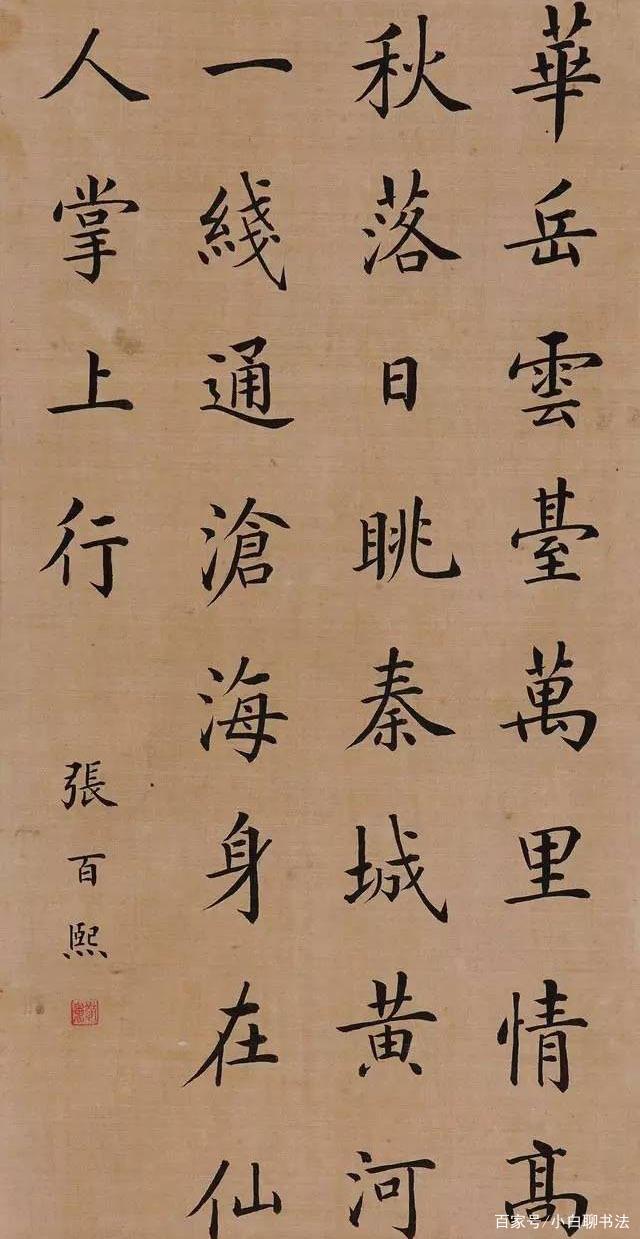 華岳雲臺萬里情高
秋落日眺秦城黄河
一綫通滄海身在仙
人掌上行
張百熙
百家号/小白聊书法